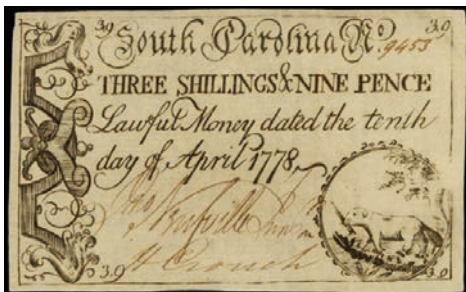 3.9 South Carolina No. 9453 3.9
THREE SHILLINGS & NINE PENCE
Lawful Money dated the tenth
day of April 1778
Neufville
H Crouch
3.9 3.9